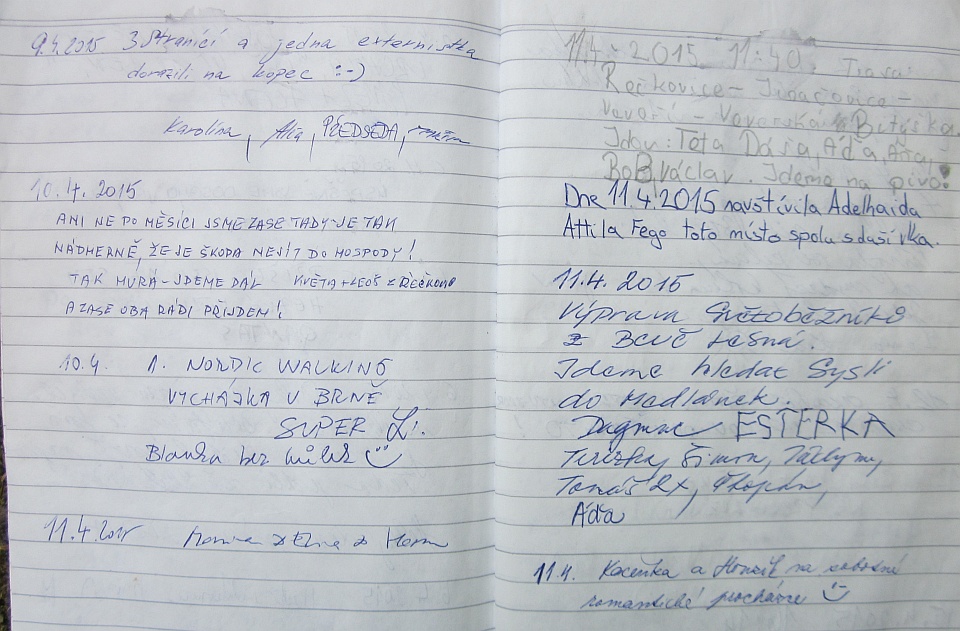 9.4.2015 3 Straníci a jedna externistka
dorazili na kopec :-)
Karolína, Áťa, PŘEDSEDA,
10.4.2015
ANI NE PO MĚSÍCI JSME ZASE TADY-JE TAK
NÁDHERNĚ, ŽE JE ŠKODA NEJÍT DO HOSPODY!
TAK HURÁ-JDEME DÁL KVĚTA+LEOŠ Z ŘEČKOVIC
A ZASE OBA RÁDI PŘIJDEM!
10.4. 1. NORDIC WALKING
VYCHÁZKA V BRNĚ
SUPER
Blanka bez hůlek
11.4.2015
11.4. 2015 11:40. Trasa:
Řečkovice - Jinačovice -
Veveří - Veverská Bitýška.
Jdou: Teta Dása, Áďa,
Bob, Václav. Jdeme na pivo!
Dne 11.4.2015 navštívila Adelhaida
Attila Fego toto místo spolu s dušívka.
11.4.2015
Výprava Světoběžníků
z Brně Lesná.
Jdeme hledat Sysli
do Medlánek.
Dagmar ESTERKA
Terezka, Šimon,
Tomáš 2x, Štěpán,
Áďa
11.4. Kačenka a Honzík na sobotní
romantické procházce